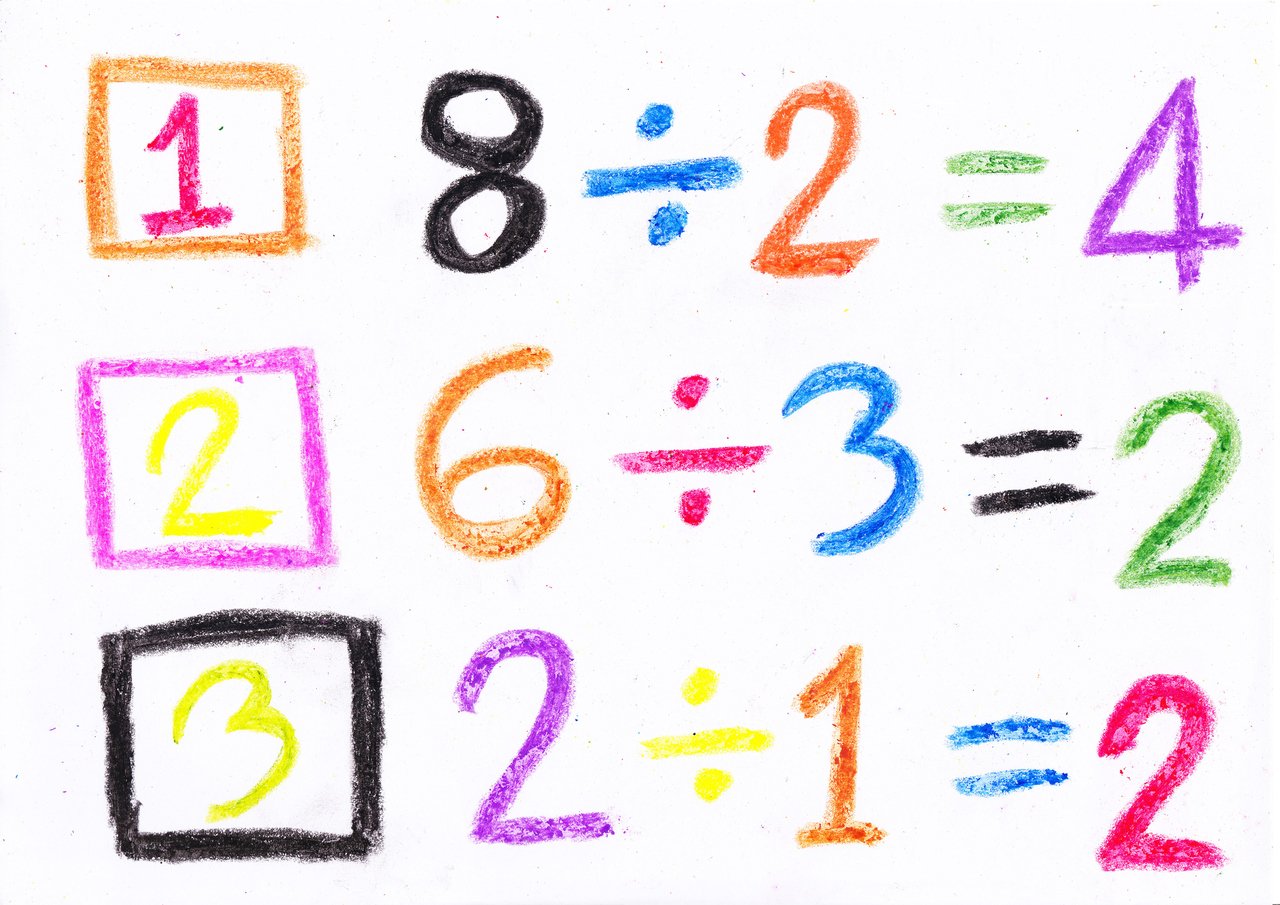 1 8 ÷ 2 = 4
2 6 ÷ 3 = 2
3 2 ÷ 1 = 2